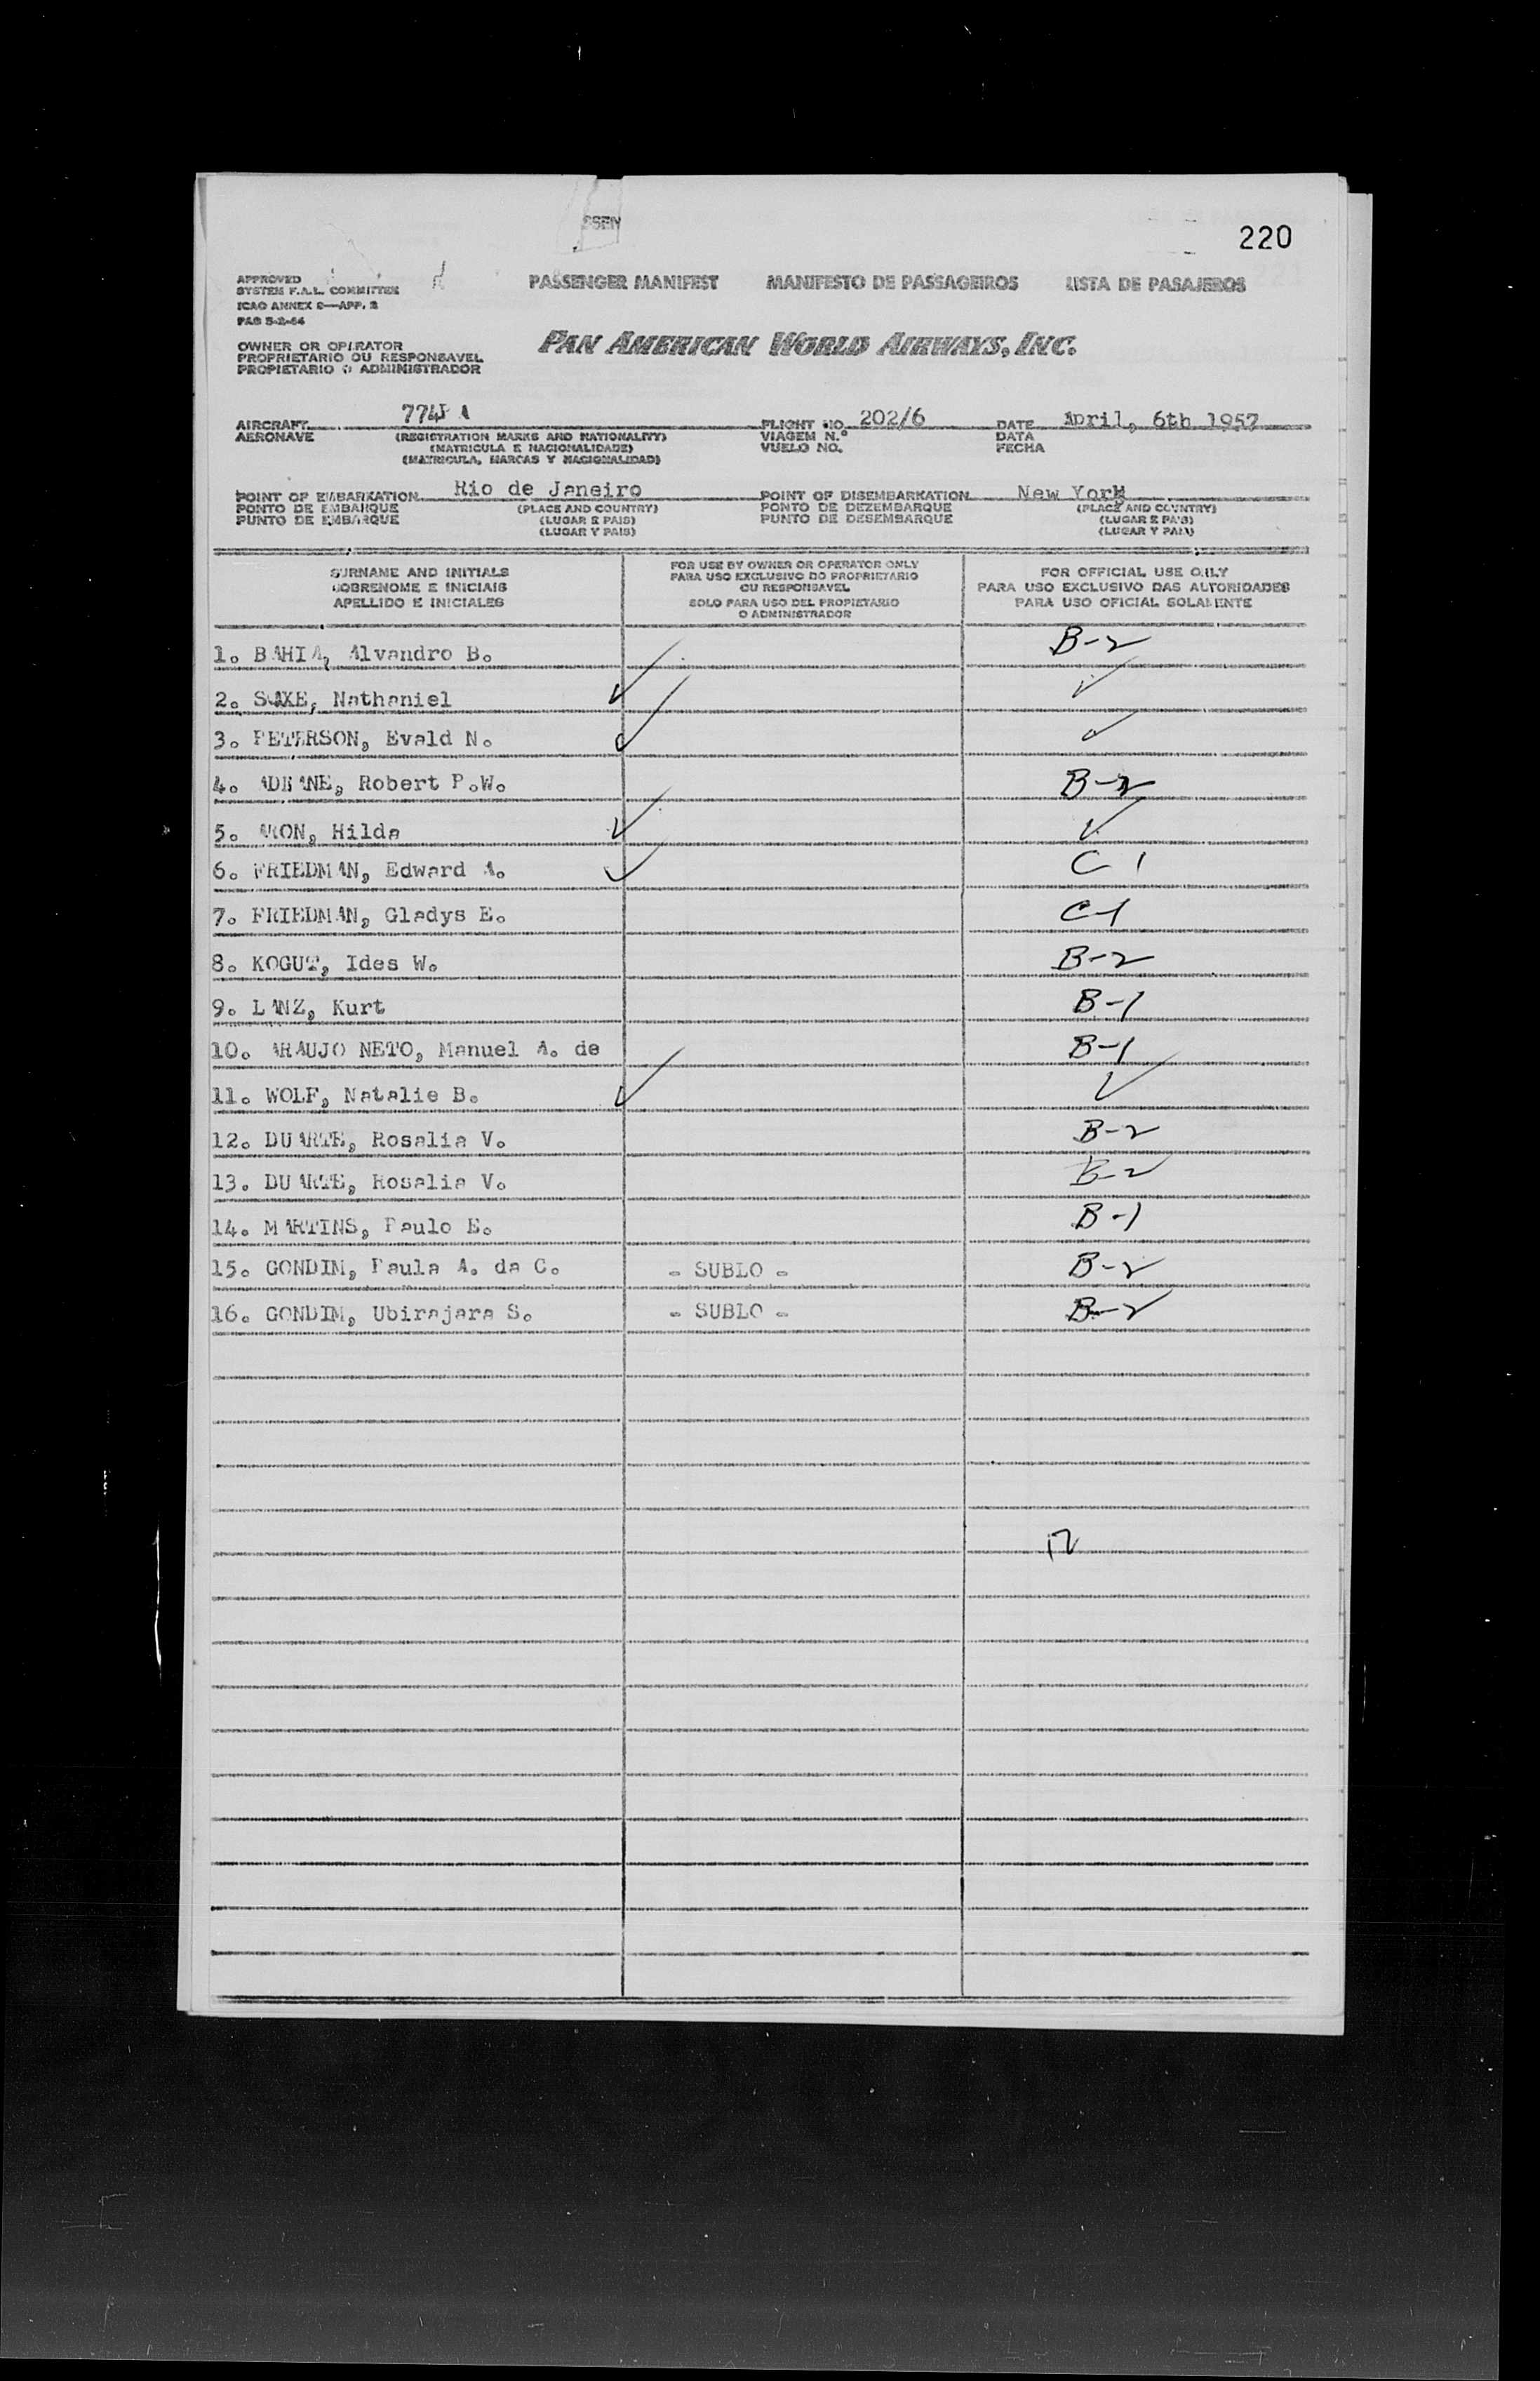 220
APPROVED
SYSTEM F.A.L. COMMITTEE
ICAO ANNEX 9—APP. 2
PASSENGER MANIFEST MANIFESTO DE PASSAGEIROS LISTA DE PASAJEROS
PAN AMERICAN WORLD AIRWAYS, INC.
OWNER OR OPERATOR
PROPRIETARIO OU RESPONSAVEL
PROPIETARIO O ADMINISTRADOR
AIRCRAFT FLIGHT NO. 202/6 DATE April, 6th 1957
AERONAVE (REGISTRATION MARKS AND NATIONALITY) VIAGEM N.º DATA
(MATRICULA E NACIONALIDADE) VUELO NO. FECHA
(MATRICULA, MARCAS Y NACIONALIDAD)
POINT OF EMBARKATION Rio de Janeiro POINT OF DISEMBARKATION New York
PONTO DE EMBARQUE (PLACE AND COUNTRY) PONTO DE DEZEMBARQUE (PLACE AND COUNTRY)
PUNTO DE EMBARQUE (LUGAR E PAIS) PUNTO DE DESEMBARQUE (LUGAR E PAIS)
(LUGAR Y PAIS) (LUGAR Y PAIS)
SURNAME AND INITIALS
SOBRENOME E INICIAIS
APELLIDO E INICIALES
FOR USE BY OWNER OR OPERATOR ONLY
PARA USO EXCLUSIVO DO PROPRIETARIO
OU RESPONSAVEL
SOLO PARA USO DEL PROPIETARIO
O ADMINISTRADOR
FOR OFFICIAL USE ONLY
PARA USO EXCLUSIVO DAS AUTORIDADES
PARA USO OFICIAL SOLAMENTE
1. BAHIA, Alvandro B. B-2
2. Nathaniel ✓ ✓
3. PETERSON, Evald N. ✓ ✓
4. Robert P.W. B-2
5. ARON, Hilda ✓ ✓
6. FRIEDMAN, Edward A. ✓ C-1
7. FRIEDMAN, Gladys E. C-1
8. KOGUT, Ides W. B-2
9. LANZ, Kurt B-1
10. ARAUJO NETO, Manuel A. de B-1
11. WOLF, Natalie B. ✓ ✓
12. DUARTE, Rosalia V. B-2
13. DUARTE, Rosalia V. B-2
14. MARTINS, Paulo E. B-1
15. GONDIM, Paula A. da C. - SUBLO - B-2
16. GONDIM, Ubirajara S. - SUBLO - B-2